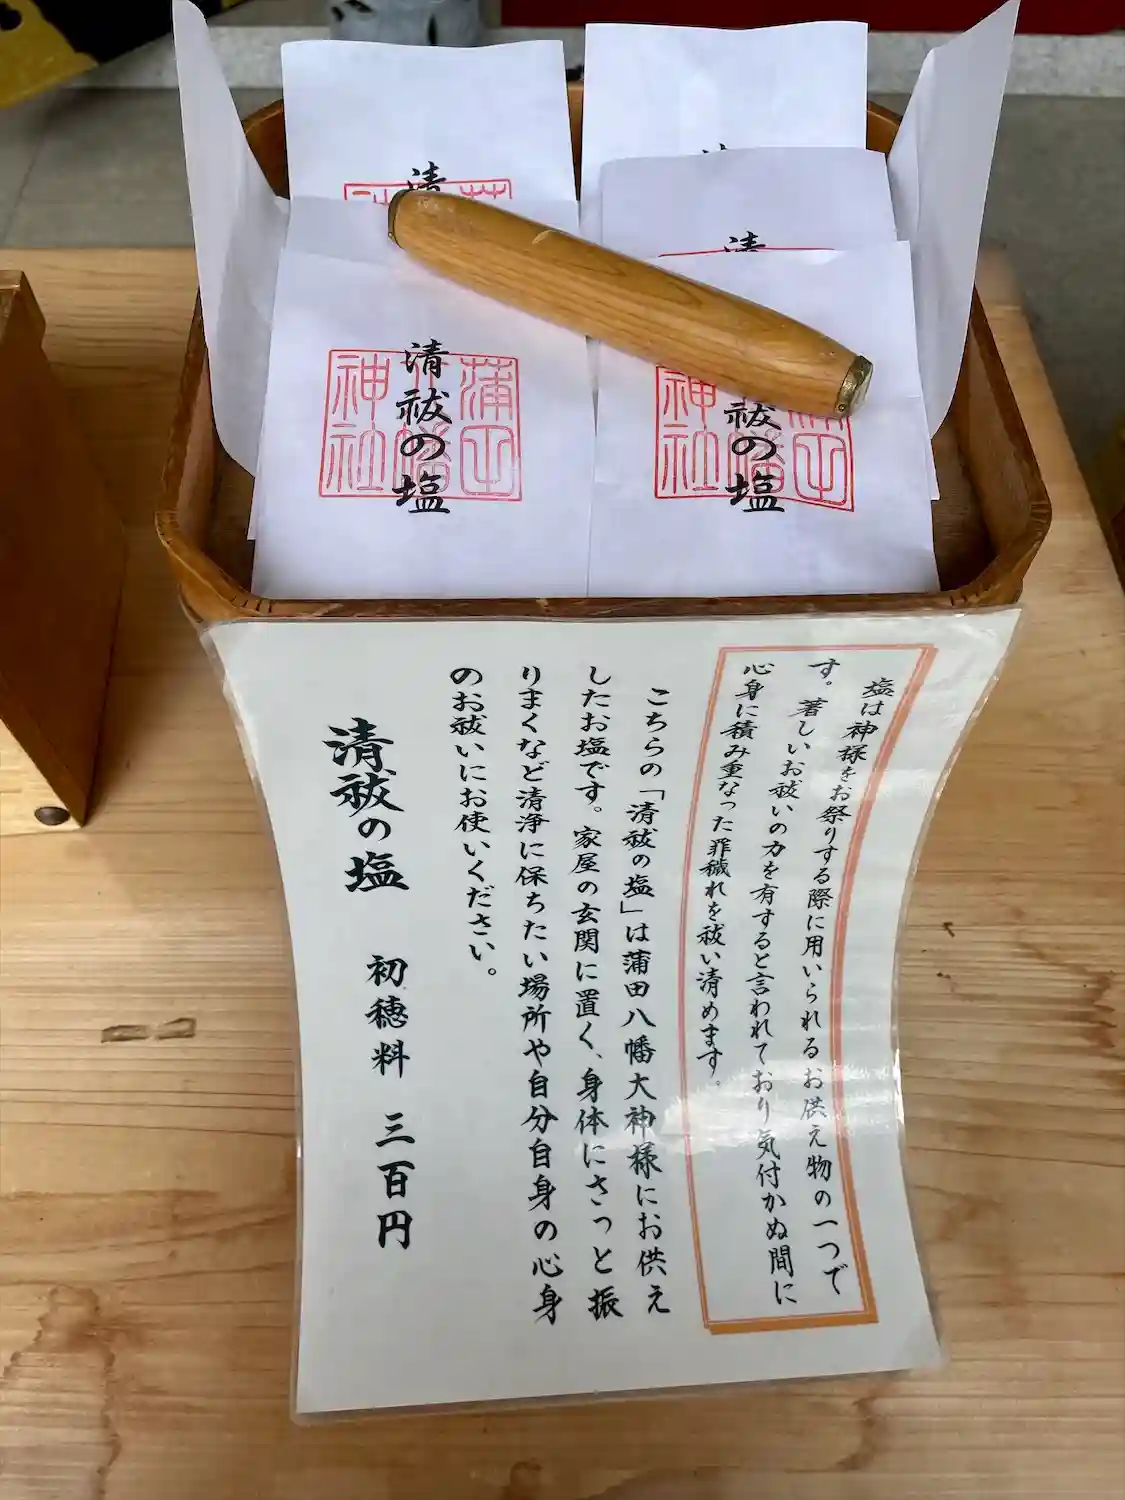 清
清
清祓の塩
蒲田
八幡
神社
祓の塩
神社
塩は神様をお祭りする際に用いられるお供え物の一つで
す。著しいお祓いの力を有すると言われており気付かぬ間に
心身に積み重なった罪穢れを祓い清めます。
こちらの「清祓の塩」は蒲田八幡大神様にお供え
したお塩です。家屋の玄関に置く、身体にさっと振
りまくなど清浄に保ちたい場所や自分自身の心身
のお祓いにお使いください。
清祓の塩 初穂料 三百円